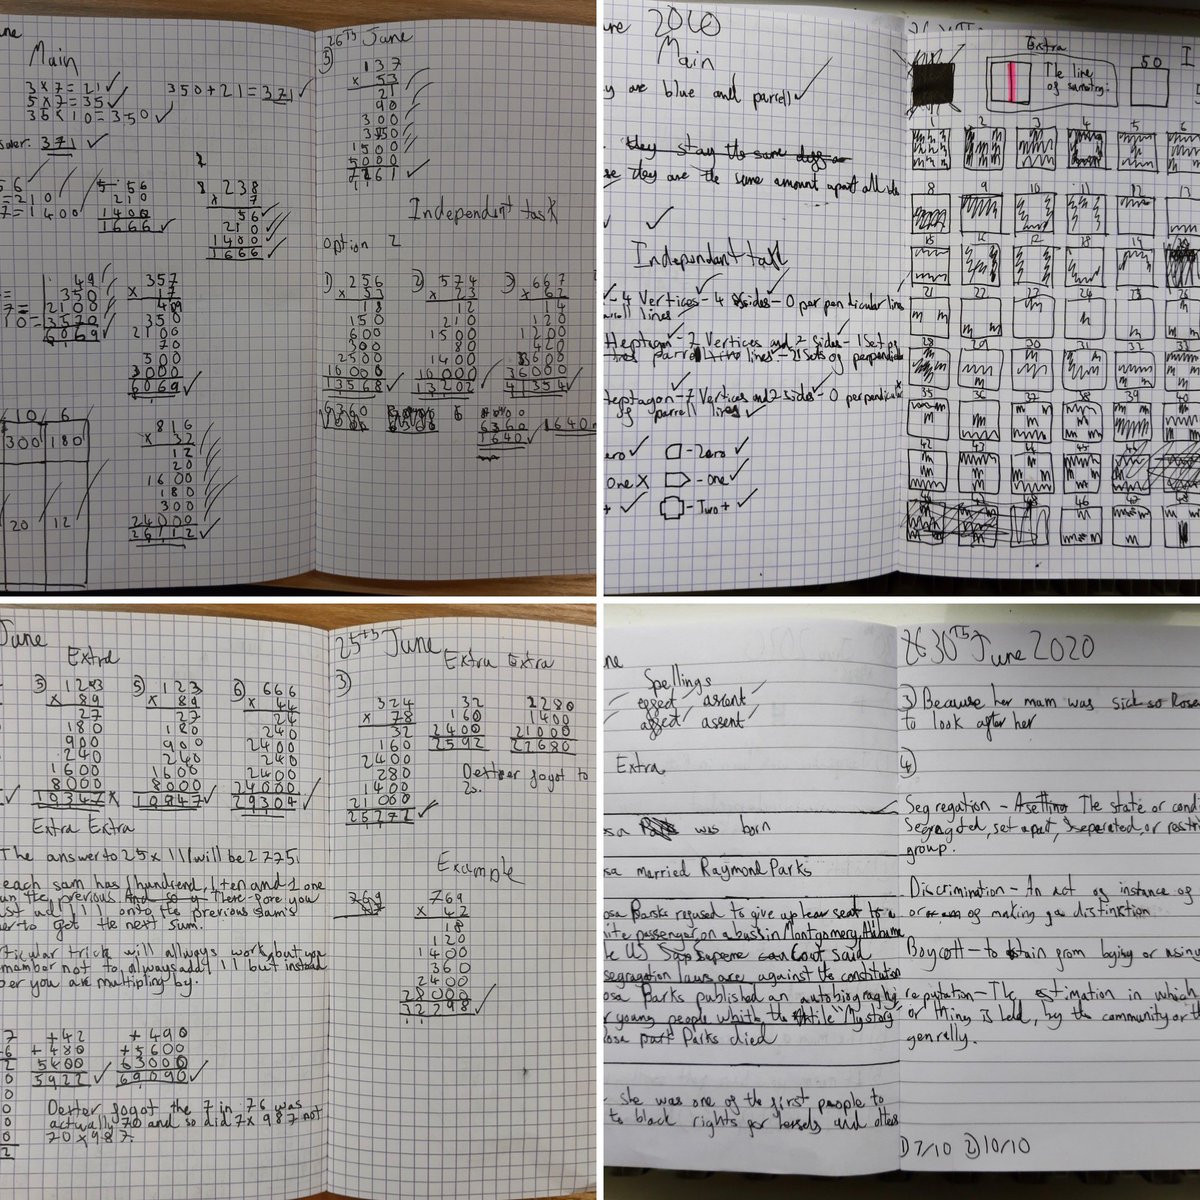 une
Main
3 x 7 = 21 ✓
5 x 7 = 35 ✓
35 x 10 = 350 ✓
350 + 21 = 371 ✓
swer: 371 ✓
56
= 210
7 = 1400
56
210
1400
1666 ✓
8 238
x 7
56
210
1400
1666 ✓
49
350
2100
3570
6069 ✓
357
x 17
49
350
2100
70
500
3000
6069 ✓
10 6
300 180
20 12
816
x 32
12
20
1600
180
300
24000
26112 ✓
26th June
5)
137
x 53
21
90
300
350
1500
5000
7261 ✓
Independent task
option 2
1) 256
x 53
18
150
600
300
2500
10000
13568 ✓
2) 574
x 23
12
210
1500
80
1400
10000
13202 ✓
3) 667
x 62
14
120
1200
420
3600
36000
41354 ✓
6360
1640 ✓
1640
une 2020
Main
y are blue and parrell ✓
they stay the same
se they are the same amount apart all
Independant task
- 4 Vertices - 4 sides - 0 perpendicular lines
lines
Heptagon - 7 Vertices and 7 sides - 1 Set of
parrell lines - 2 Sets of perpendic
Heptagon - 7 Vertices and 7 sides - 0 perpendicular
of parrell lines
ero ✓ - Zero ✓
One X - one ✓
+ ✓ - Two + ✓
Extra
The line
of symatry.
50
1 2 3 4 5 6
8 9 10 11 12 13
15 16 17 18 19 20
21 22 23 24 25 26
28 29 30 31 32 33
35 36 37 38 39 40
42 43 44 45
46 47 48
June
Extra
3) 123
x 89
27
180
900
240
1600
8000
10347 X
5) 123
x 89
27
180
900
240
1600
8000
10947 ✓
6) 666
x 44
24
240
2400
240
2400
24000
29304 ✓
Extra Extra
The answer to 25 x 111 will be 2775.
each sam has 1 hundrend, 1 ten and 1 one
un the previous And so y There-fore you
ust add 111 onto the previous sam's
er to get the next sum.
rticular trick will allways work, but you
mambor not to always add 111 but instead
ber you are multipling by.
+ 42
+ 480
5400
5922 ✓
+ 490
+ 5600
63000
69090 ✓
Dexter fogot the 7 in 76 was
actually 70 and so did 7 x 987 not
70 x 987.
25th June
Extra Extra
3)
324
x 78
32
160
2400
280
1400
21000
25272 ✓
32
160
2400
2592
2280
1400
21000
22680
Dexter fogot to
20.
Example
769
769
x 42
18
120
1400
360
2400
28000
32298 ✓
ne
Spellings
effect ascent
affect assent
Extra
sa was born
sa married Raymond Parks
osa Parks refused to give up hear seat to a
ite passenger on a bus in Montgomery, Alabama
e US Supreme Cout said
segregation laws are against the constitution
osa Parks published an autobiography
r young people whith the title "My story"
osa Parks died
- She was one of the first people to
to black rights for herself and others
30th June 2020
3) Because her mam was sick so Rose
to look after her
4)
Segregation - The state or cond
Segregated, set apart, seperated, or restri
group.
Discrimination - An act of instance of
or of making a distinction
Boycott - to abstain from buying or using
reputation - The estimation in which
or thing is held, by the community or the
genrelly.
1) 7/10 2) 10/10